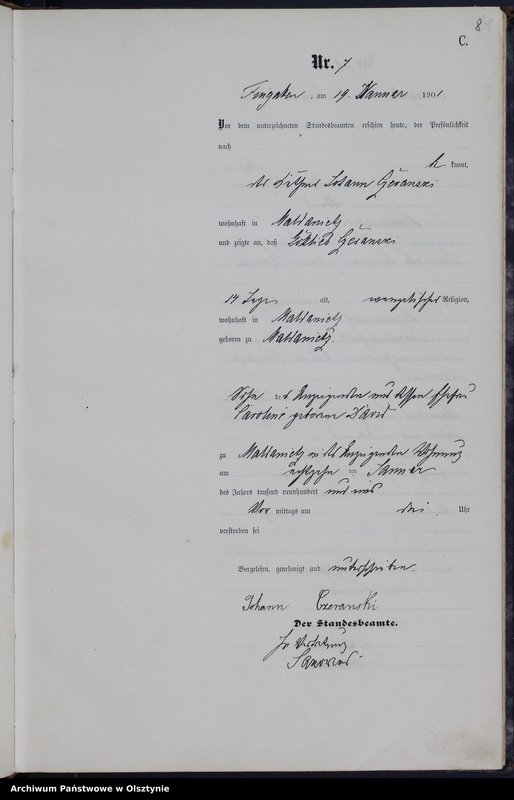 8
C.
Nr. 7
am 19. Januar 1901.
Vor dem unterzeichneten Standesbeamten erschien heute, der Persönlichkeit
nach
kannt,
der Johann Czeranski
wohnhaft in
und zeigte an, daß Gottlieb Czeranski
14 Tage alt, evangelischer Religion,
wohnhaft in
geboren zu
Sohn des Anzeigenden und dessen Ehefrau
Caroline geborene
zu in des Anzeigenden Wohnung
am achtzehn ten Januar
des Jahres tausend neunhundert und eins
Vor mittags um drei Uhr
verstorben sei
Vorgelesen, genehmigt und unterschrieben.
Johann Czeranski
Der Standesbeamte.
In Vertretung
Archiwum Państwowe w Olsztynie